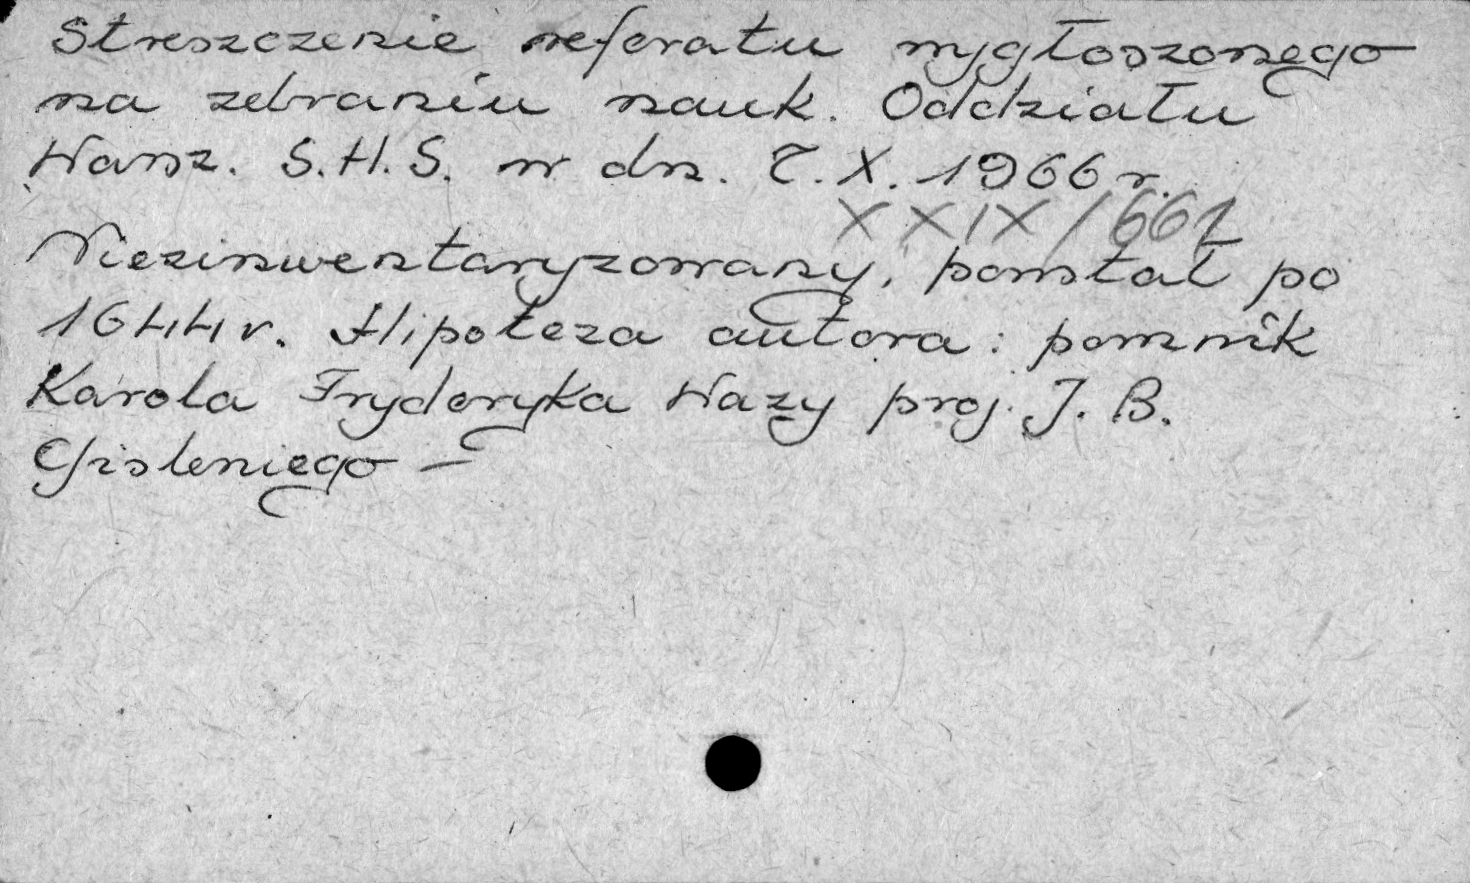 Streszczenie referatu wygłoszonego
na zebraniu nauk. Oddziału
Warsz. S.H.S. w dn. 7.X.1966 r.
XXIX/667
Niezinwentaryzowany, powstał po
1644 r. Hipoteza autora: pomnik
Karola Fryderyka Wazy proj. J. B.
Gisleniego –